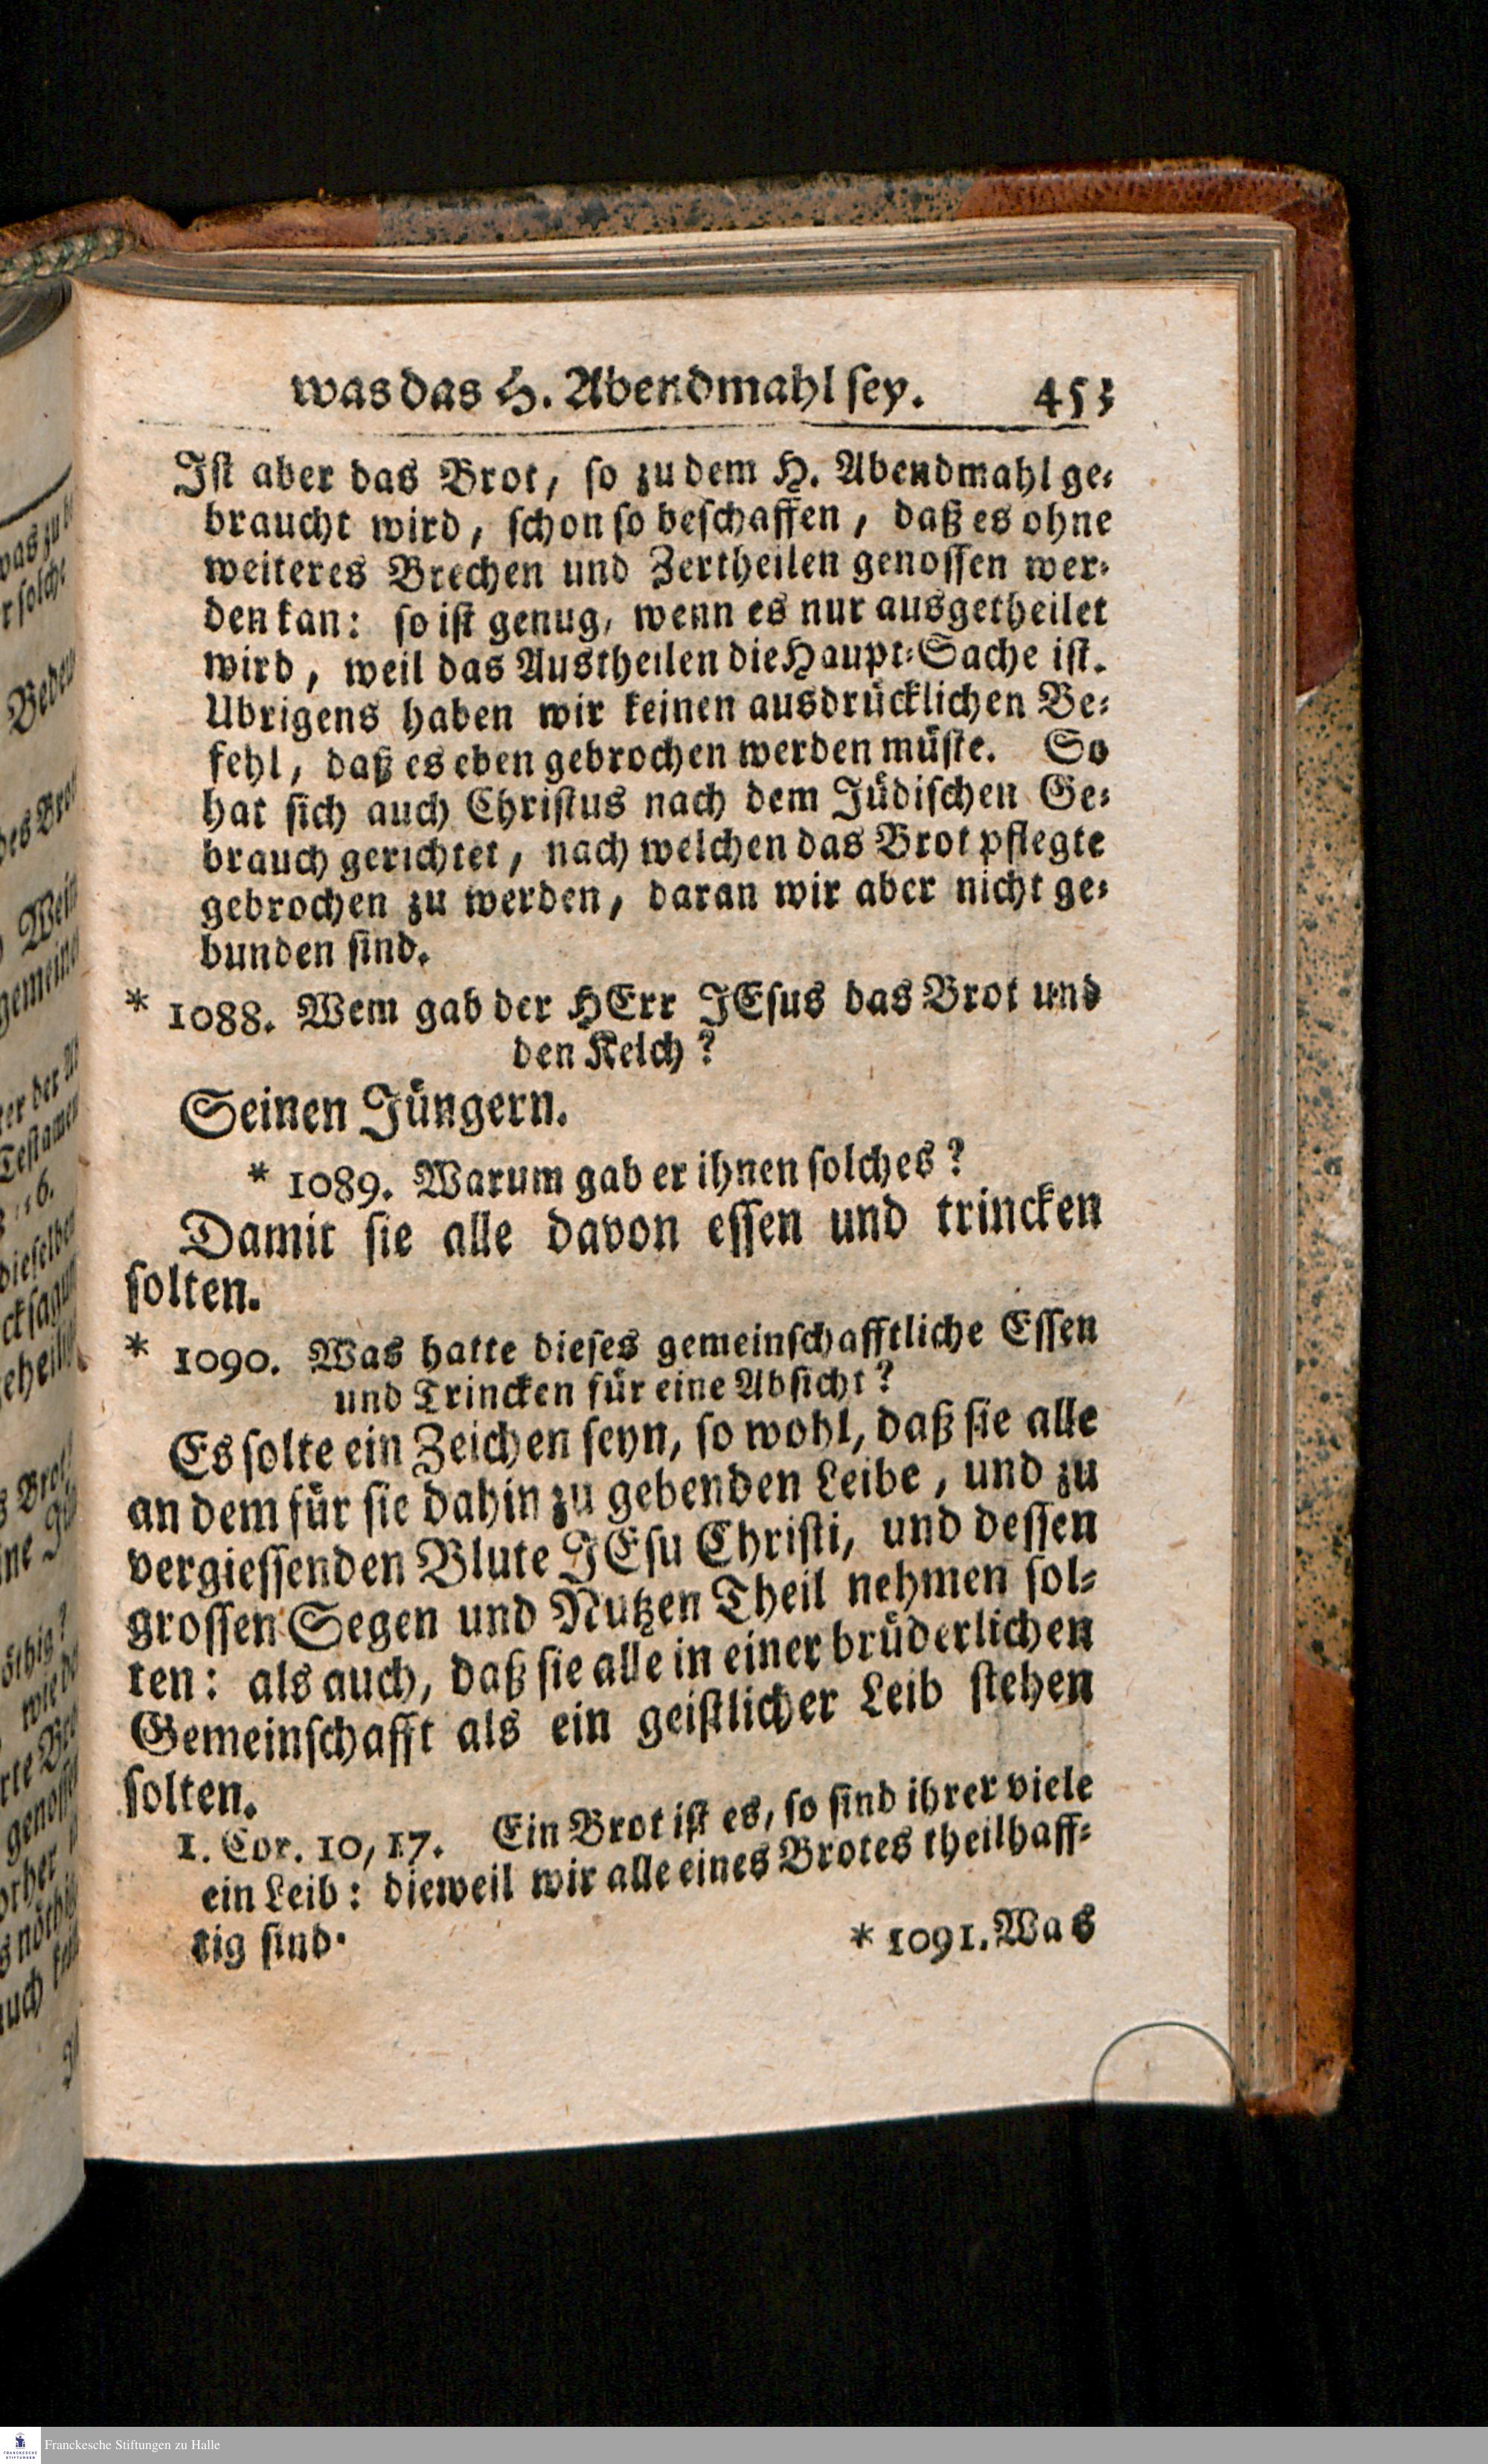 was das H. Abendmahl sey. 453
Ist aber das Brot, so zu dem H. Abendmahl ge-
braucht wird, schon so beschaffen, daß es ohne
weiteres Brechen und Zertheilen genossen wer-
den kan: so ist genug, wenn es nur ausgetheilet
wird, weil das Austheilen die Haupt-Sache ist.
Ubrigens haben wir keinen ausdrücklichen Be-
fehl, daß es eben gebrochen werden müste. So
hat sich auch Christus nach dem Jüdischen Ge-
brauch gerichtet, nach welchen das Brot pflegte
gebrochen zu werden, daran wir aber nicht ge-
bunden sind.
* 1088. Wem gab der HErr JEsus das Brot und
den Kelch?
Seinen Jüngern.
* 1089. Warum gab er ihnen solches?
Damit sie alle davon essen und trincken
solten.
* 1090. Was hatte dieses gemeinschafftliche Essen
und Trincken für eine Absicht?
Es solte ein Zeichen seyn, so wohl, daß sie alle
an dem für sie dahin zu gebenden Leibe, und zu
vergiessenden Blute JEsu Christi, und dessen
grossen Segen und Nutzen Theil nehmen sol-
ten: als auch, daß sie alle in einer brüderlichen
Gemeinschafft als ein geistlicher Leib stehen
solten.
1. Cor. 10, 17. Ein Brot ist es, so sind ihrer viele
ein Leib: dieweil wir alle eines Brotes theilhaff-
tig sind.
* 1091. Was
Franckesche Stiftungen zu Halle